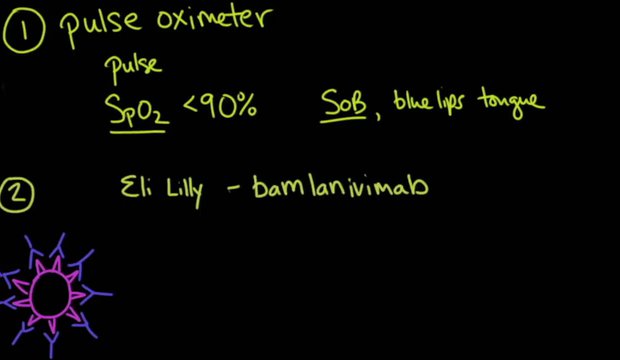 1 pulse oximeter
pulse
SpO2 <90% SOB, blue lips tongue
2 Eli Lilly - bamlanivimab